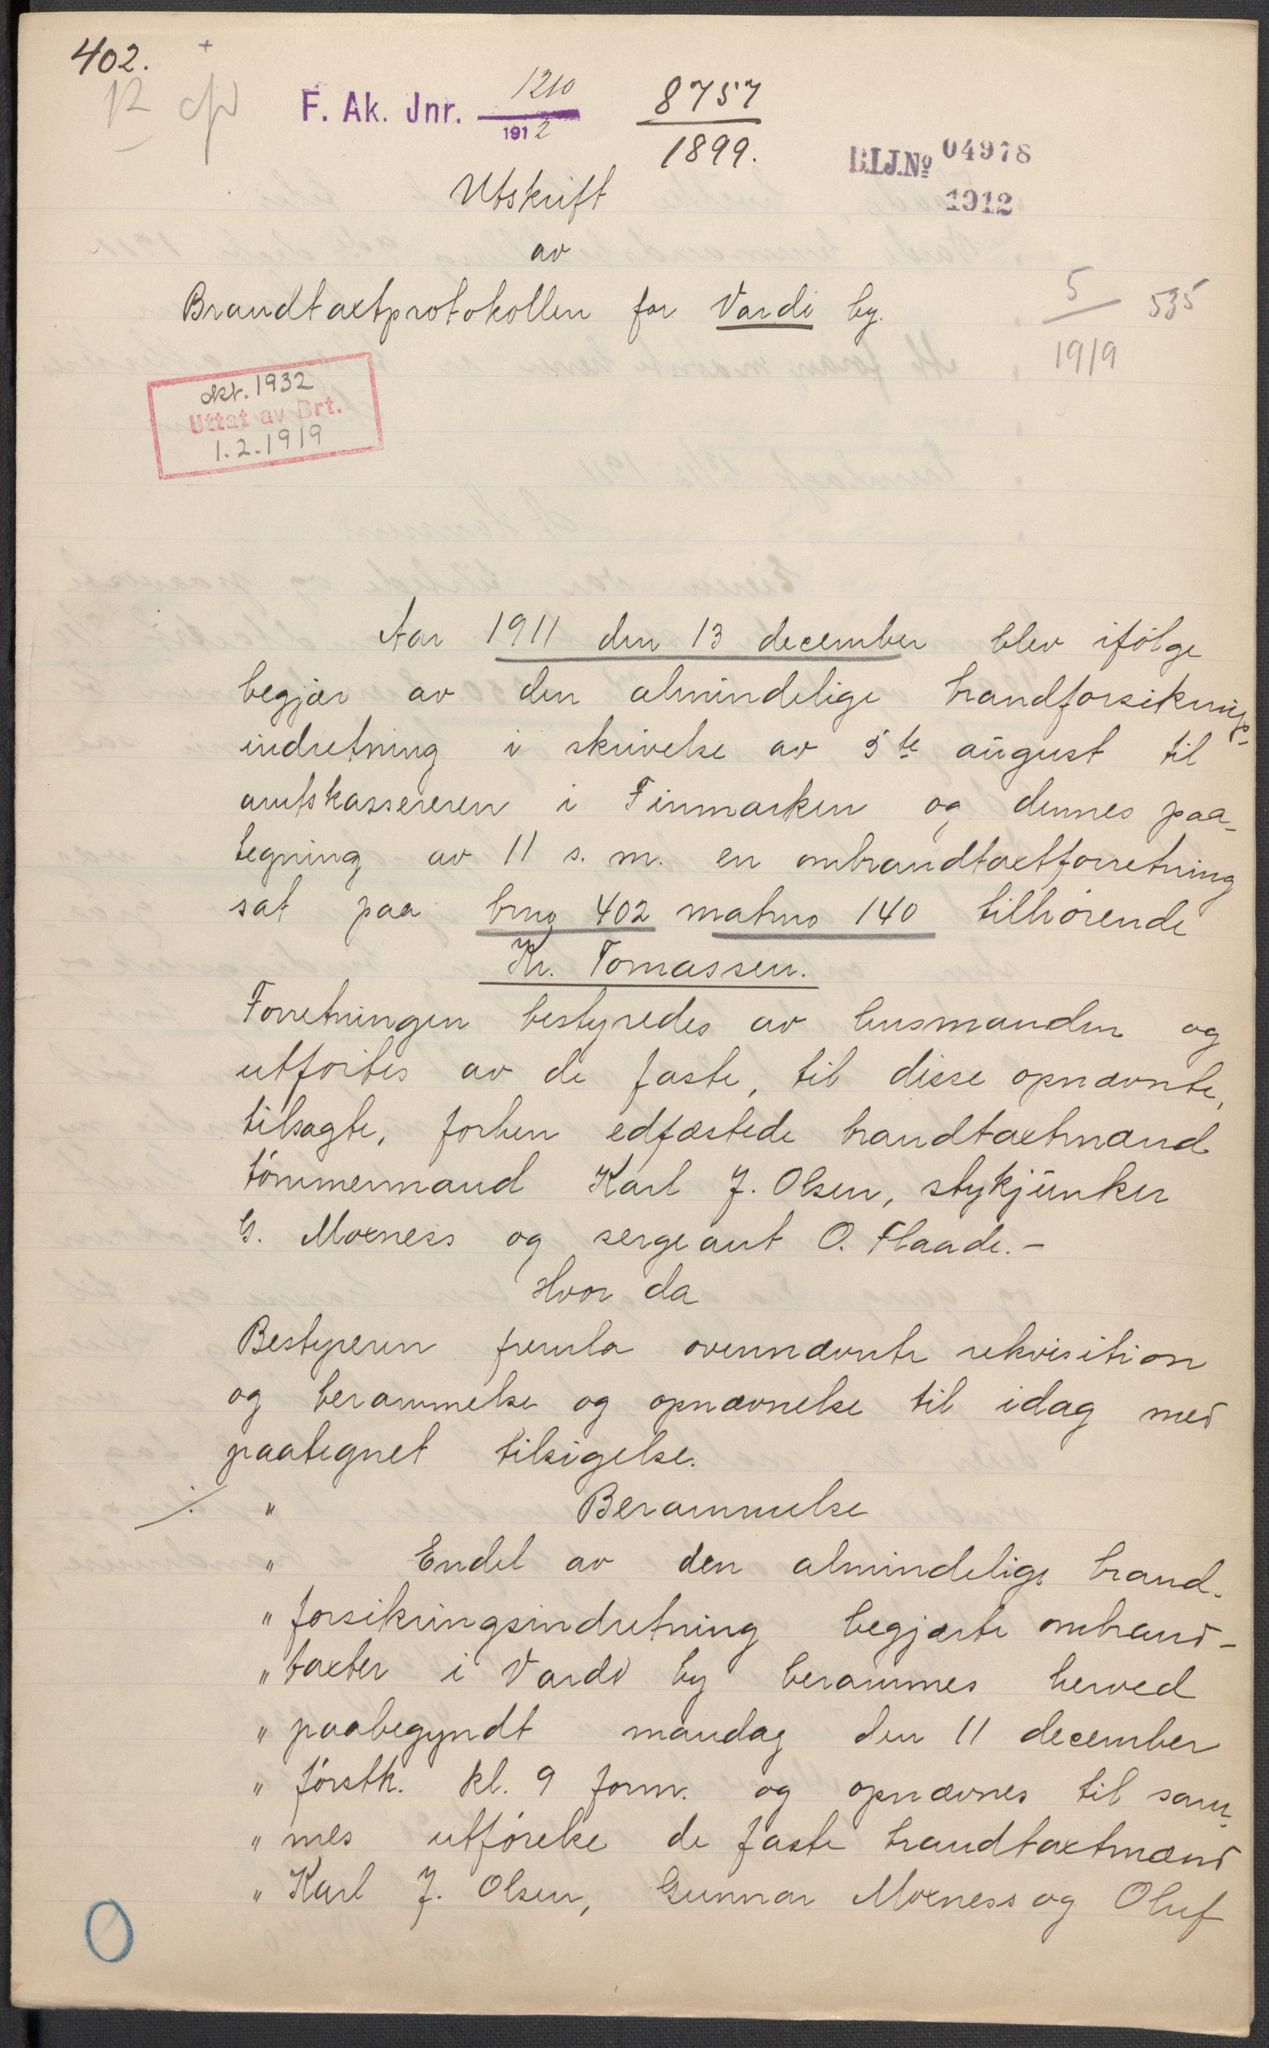 402.
F. Ak. Jnr. 1210
1912
8757
1899.
B.I.J.No 04978
1912
Utskrift
av
Brandtaxtprotokollen for Vardö by.
5 535
1919
okt. 1932
Uttat av Brt.
1.2.1919
Aar 1911 den 13 december blev ifölge
begjær av den almindelige brandforsikrings-
indretning i skrivelse av 5te august til
amtskassereren i Finmarken og dennes paa-
tegning av 11 s. m. en ombrandtaxtforretning
sat paa brno 402 matrno 140 tilhörende
Kr. Tomassen.
Forretningen bestyredes av lensmanden og
utförtes av de faste, til disse opnævnte,
tilsagte, forhen edfæstede brandtaxtmænd
tömmermand Karl J. Olsen, stykjunker
G. Moxness og sergeant O. Flaade. –
Hvor da
Bestyreren fremla ovennævnte rekvisition
og berammelse og opnævnelse til idag med
paategnet tilsigelse.
./. " Berammelse
" Endel av den almindelige brand-
" forsikringsindretning begjærte ombrand-
" taxter i Vardö by berammes herved
" paabegyndt mandag den 11 december
" förstk. kl. 9 form. og opnævnes til sam-
" mes utförelse de faste brandtaxtmænd
" Karl J. Olsen, Gunnar Moxness og Oluf